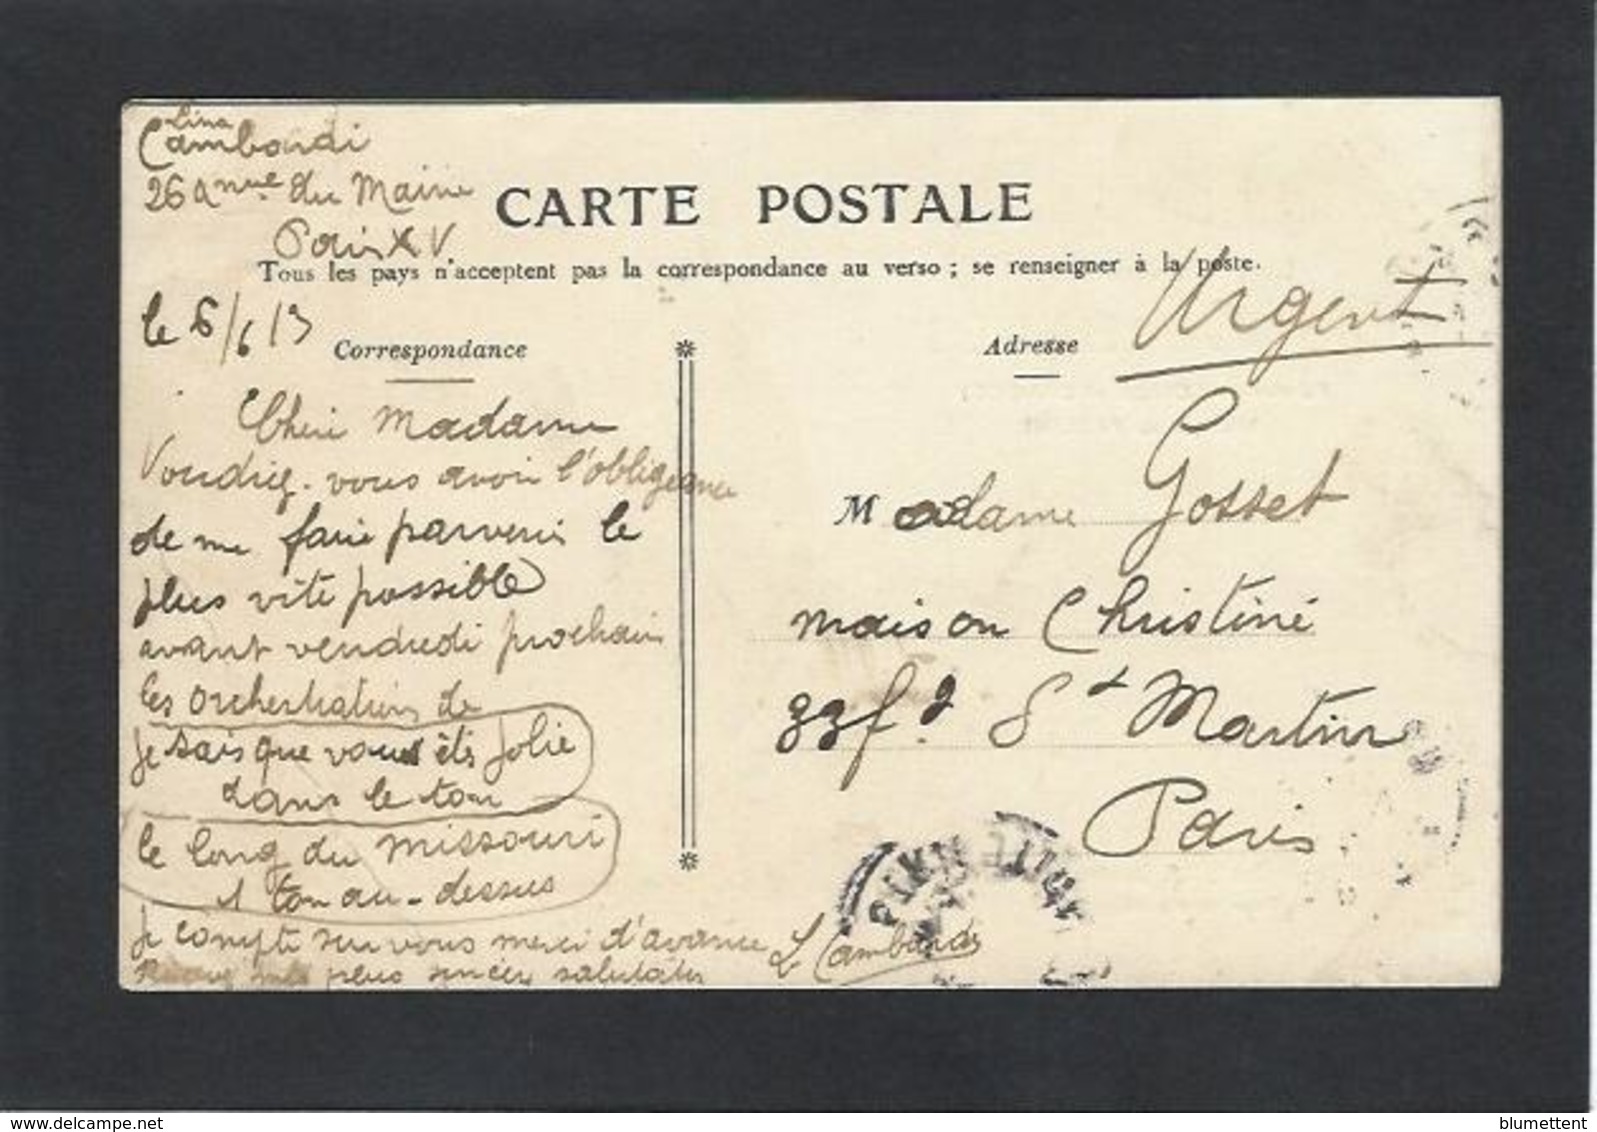 Lina
Cambardi
26 anue du Maine
Paris XV
CARTE POSTALE
Tous les pays n'acceptent pas la correspondance au verso ; se renseigner à la poste.
le 6/6/13
Urgent
Correspondance
Adresse
Chère Madame
Voudriez-vous avoir l'obligeance
de me faire parvenir le
plus vite possible
avant vendredi prochain
les orchestrations de
Je sais que vous êtes jolie
dans le ton
le long du Missouri
1 ton au-dessus
Je compte sur vous merci d'avance
plus sincères salutations
L Cambardi
Madame Gosset
maison Christiné
33 fg St Martin
Paris
blumettent